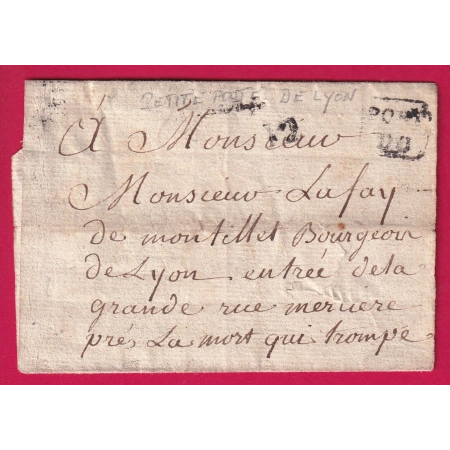 PETITE POSTE DE LYON
PORT
À Monsieur
Monsieur Lafay
de montillet Bourgeois
de Lyon entrée dela
grande rue merciere
prés La mort qui trompe